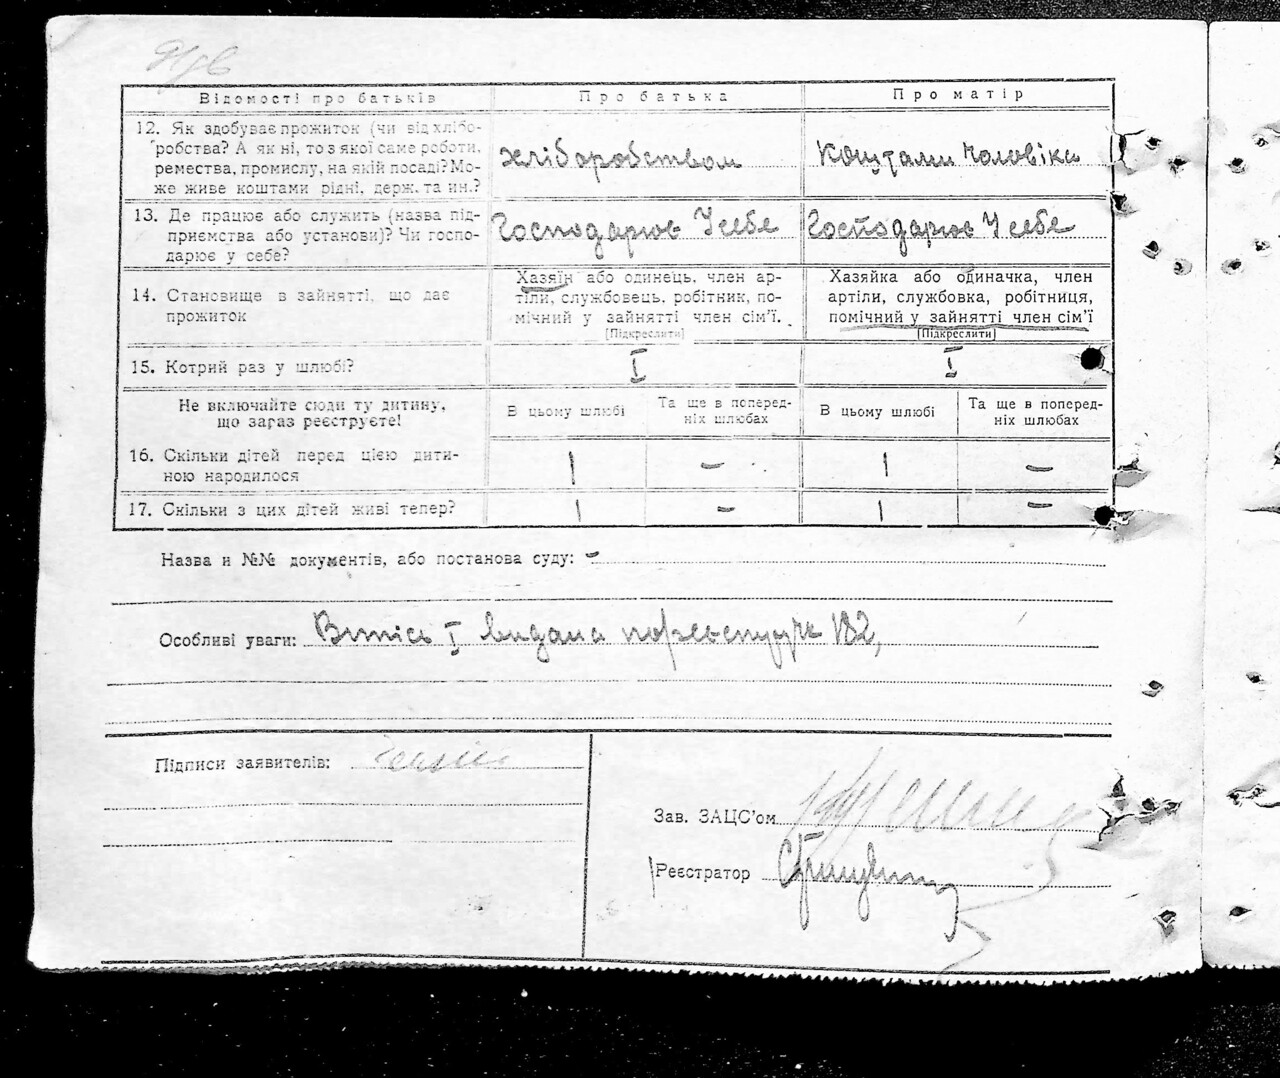 Відомості про батьків
Про батька
Про матір
12. Як здобуває прожиток (чи від хлібо-
робства? А як ні, то з якої саме роботи,
ремества, промислу, на якій посаді? Мо-
же живе коштами рідні, держ. та ин.?
хліборобством
коштами чоловіка
13. Де працює або служить (назва під-
приємства або установи)? Чи госпо-
дарює у себе?
Господарює У себе
Господарює У себе
14. Становище в зайнятті, що дає
прожиток
Хазяїн або одинець, член ар-
тіли, службовець, робітник, по-
мічний у зайнятті член сім'ї.
[Підкреслити]
Хазяйка або одиначка, член
артіли, службовка, робітниця,
помічний у зайнятті член сім'ї
[Підкреслити]
15. Котрий раз у шлюбі?
I
I
Не включайте сюди ту дитину,
що зараз реєструєте!
В цьому шлюбі
Та ще в поперед-
ніх шлюбах
В цьому шлюбі
Та ще в поперед-
ніх шлюбах
16. Скільки дітей перед цією дити-
ною народилося
1
–
1
–
17. Скільки з цих дітей живі тепер?
1
–
1
–
Назва и №№ документів, або постанова суду: –
Особливі уваги: Випісь I видана 182,
Підписи заявителів:
Зав. ЗАЦС'ом
Реєстратор